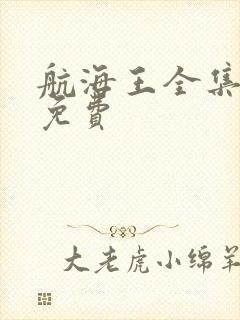 航海王全集
免費
大老虎小绵羊